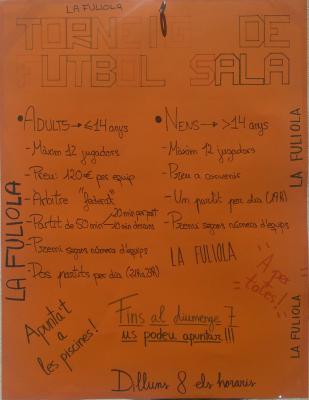 LA FULIOLA
TORNEIG DE
FUTBOL SALA
• ADULTS → ≤14 anys
- Màxim 12 jugadors
- Preu: 120€ per equip
- Àrbitre "federat"
- Partit de 50 min
20 min per part
10 min descans
- Premi segons número d'equips
- Dos partits per dia
• NENS → >14 anys
- Màxim 12 jugadors
- Preu a convenir
- Un partit per dia (19h)
- Premi segons número d'equips
LA FULIOLA
LA FULIOLA
LA FULIOLA
LA FULIOLA
"A per totes!"
Apunta't
a
les piscines!
Fins al diumenge 7
us podeu apuntar!!!
Dilluns 8 els horaris